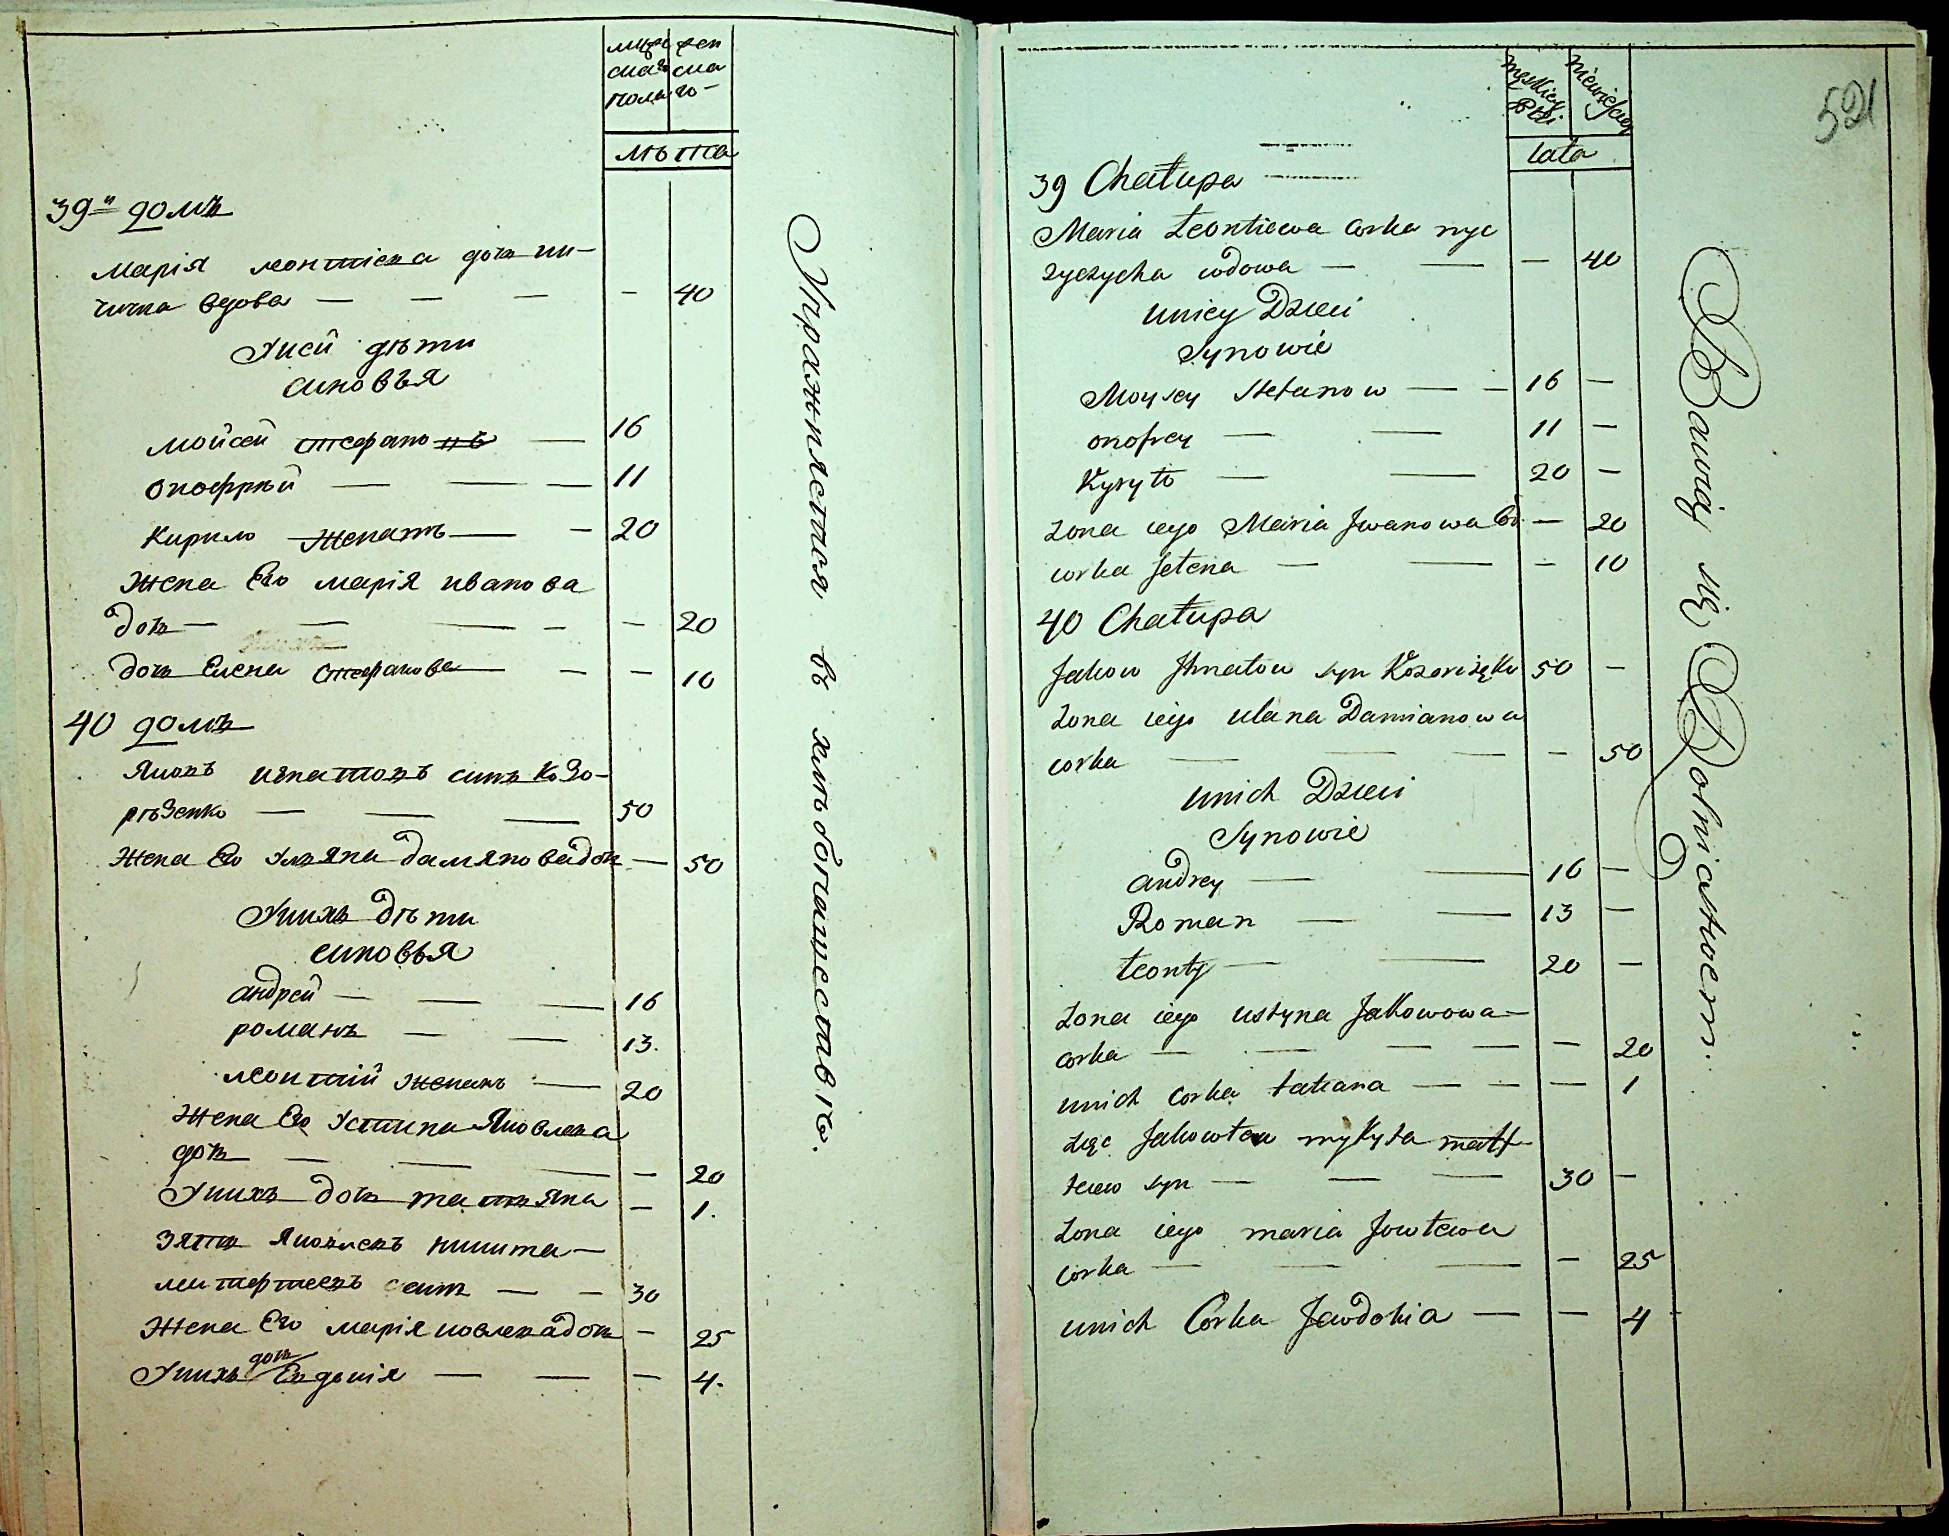 мужеска жен
ска
полы го
лѣта
39й домъ
Марія леонтіева дочь ни-
чичка вдова — — — — 40
Уней дѣти
синовъя
мойсей стефановъ — 16
онофрій — — — 11
Кирило женатъ — — 20
Жена Его марія иванова
дочь — — — — — 20
дочь Елена стефанова — — — 10
40 домъ
Яковъ игнатовъ синъ Козо-
рѣзенко — — — 50
Жена Его Ульяна дамянова дочь — 50
Унихъ дѣти
синовья
андрей — — — 16
романъ — — 13.
леонтій женатъ — 20
Жена Его Устина Яковлева
дочь — — — — 20
Унихъ дочь татьяна — 1.
Зять Яковлевъ никита —
митофтеевъ синъ — — 30
Жена Его марія иовлева дочь — 25
Унихъ дочь Евдокія — — — 4.
Упражняется в хлѣбопашествѣ.
521
męskiey płci
niewieściey
lata
39 Chałupa
Maria Leontiewa corka nyc
zyczycha wdowa — — — 40
uniey Dzieci
Synowie
Moysey Stefanow — — 16 —
onofrey — — 11 —
Kyryło — — 20 —
żona iego Maria Jwanowa Co. — 20
corka Jełena — — — 10
40 Chałupa
Jakow Jhnatow syn Kozoriżęko 50 —
żona iego ulana Damianowa
corka — — — 50
unich Dzieci
Synowie
andrey — — 16 —
Roman — — 13 —
Łeonty — — 20 —
żona iego ustyna Jakowowa —
corka — — — — — 20
unich corka tatiana — — — 1
zięc Jakowłew mykyta matf
teiew syn — — — 30 —
żona iego maria Jowłewa
corka — — — — 25
unich Corka Jewdokia — — 4
Bawią się Rolniastwem.